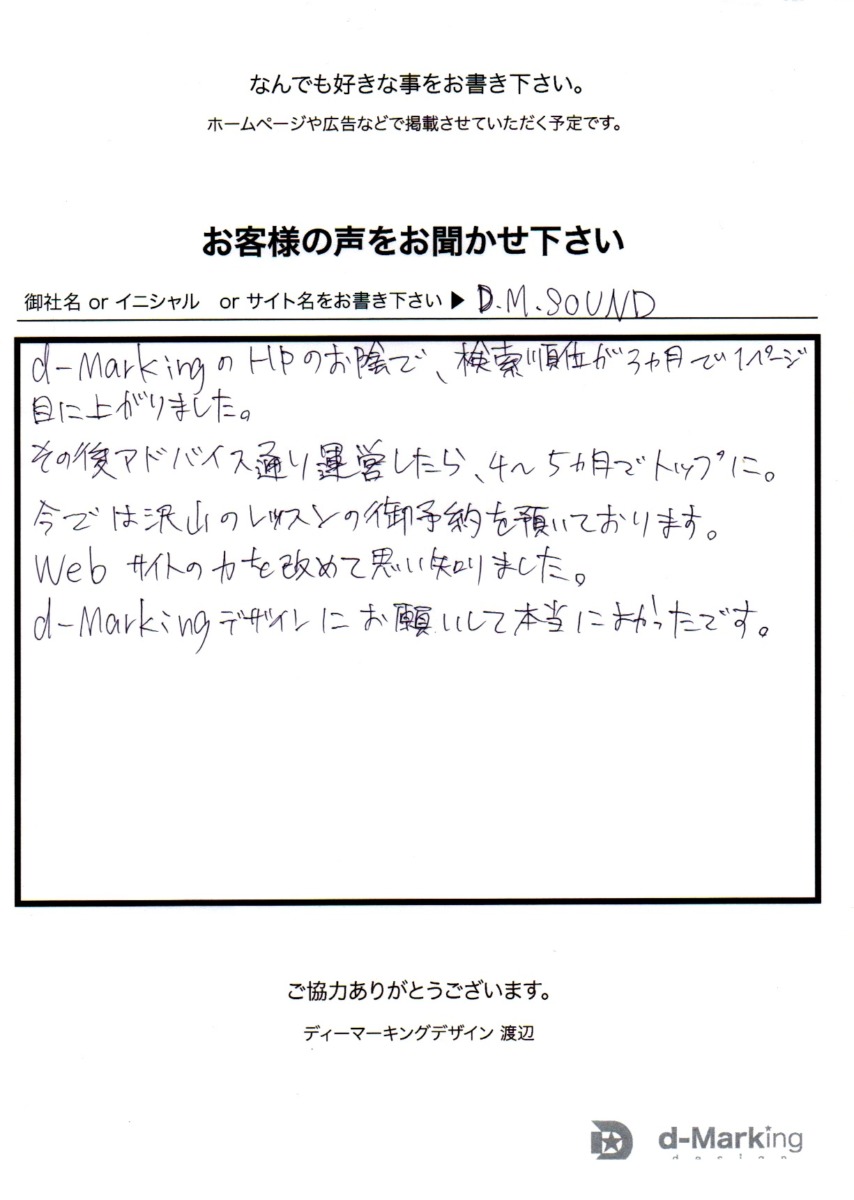 なんでも好きな事をお書き下さい。
ホームページや広告などで掲載させていただく予定です。
お客様の声をお聞かせ下さい
御社名 or イニシャル or サイト名をお書き下さい ▶ D.M.SOUND
d-MarkingのHPのお陰で、検索順位が3カ月で1ページ
目に上がりました。
その後アドバイス通り運営したら、4～5カ月でトップに。
今では沢山のレッスンの御予約を預いております。
Webサイトの力を改めて思い知りました。
d-Markingデザインにお願いして本当によかったです。
ご協力ありがとうございます。
ディーマーキングデザイン 渡辺
d-Marking
design